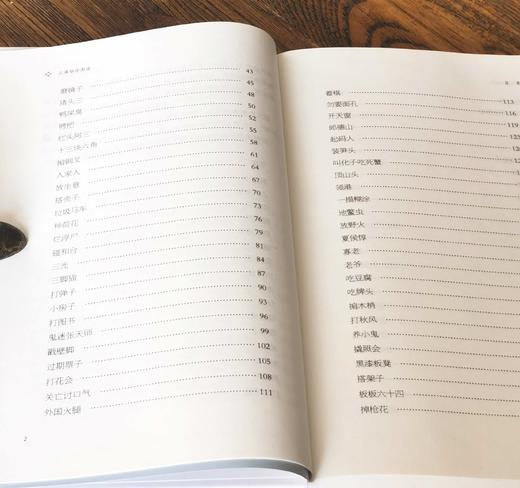 上海俗语图说
磨镜子 43
猪头三 45
鸭屎臭 48
劈把 50
红头阿三 52
十三块六角 55
掮钢叉 58
人家人 61
放生意 64
搭壳子 67
垃圾马车 70
种荷花 73
烂浮尸 76
碰和台 79
三光 81
三脚猫 84
打弹子 87
小房子 90
打图书 93
鬼迷张天师 96
戳壁脚 99
过期票子 102
打花会 105
关亡讨口气 108
外国火腿 111
2
着棋 113
勿要面孔 116
开天窗 119
起码人
装笋头
叫化子吃死蟹
顶山头
一榻糊涂
地鳖虫
放野火
夏侯惇
寿老
老爷
吃豆腐
吃牌头
掮木梢
打秋风
养小鬼
撬照会
黑漆板凳
搭架子
板板六十四
掉枪花